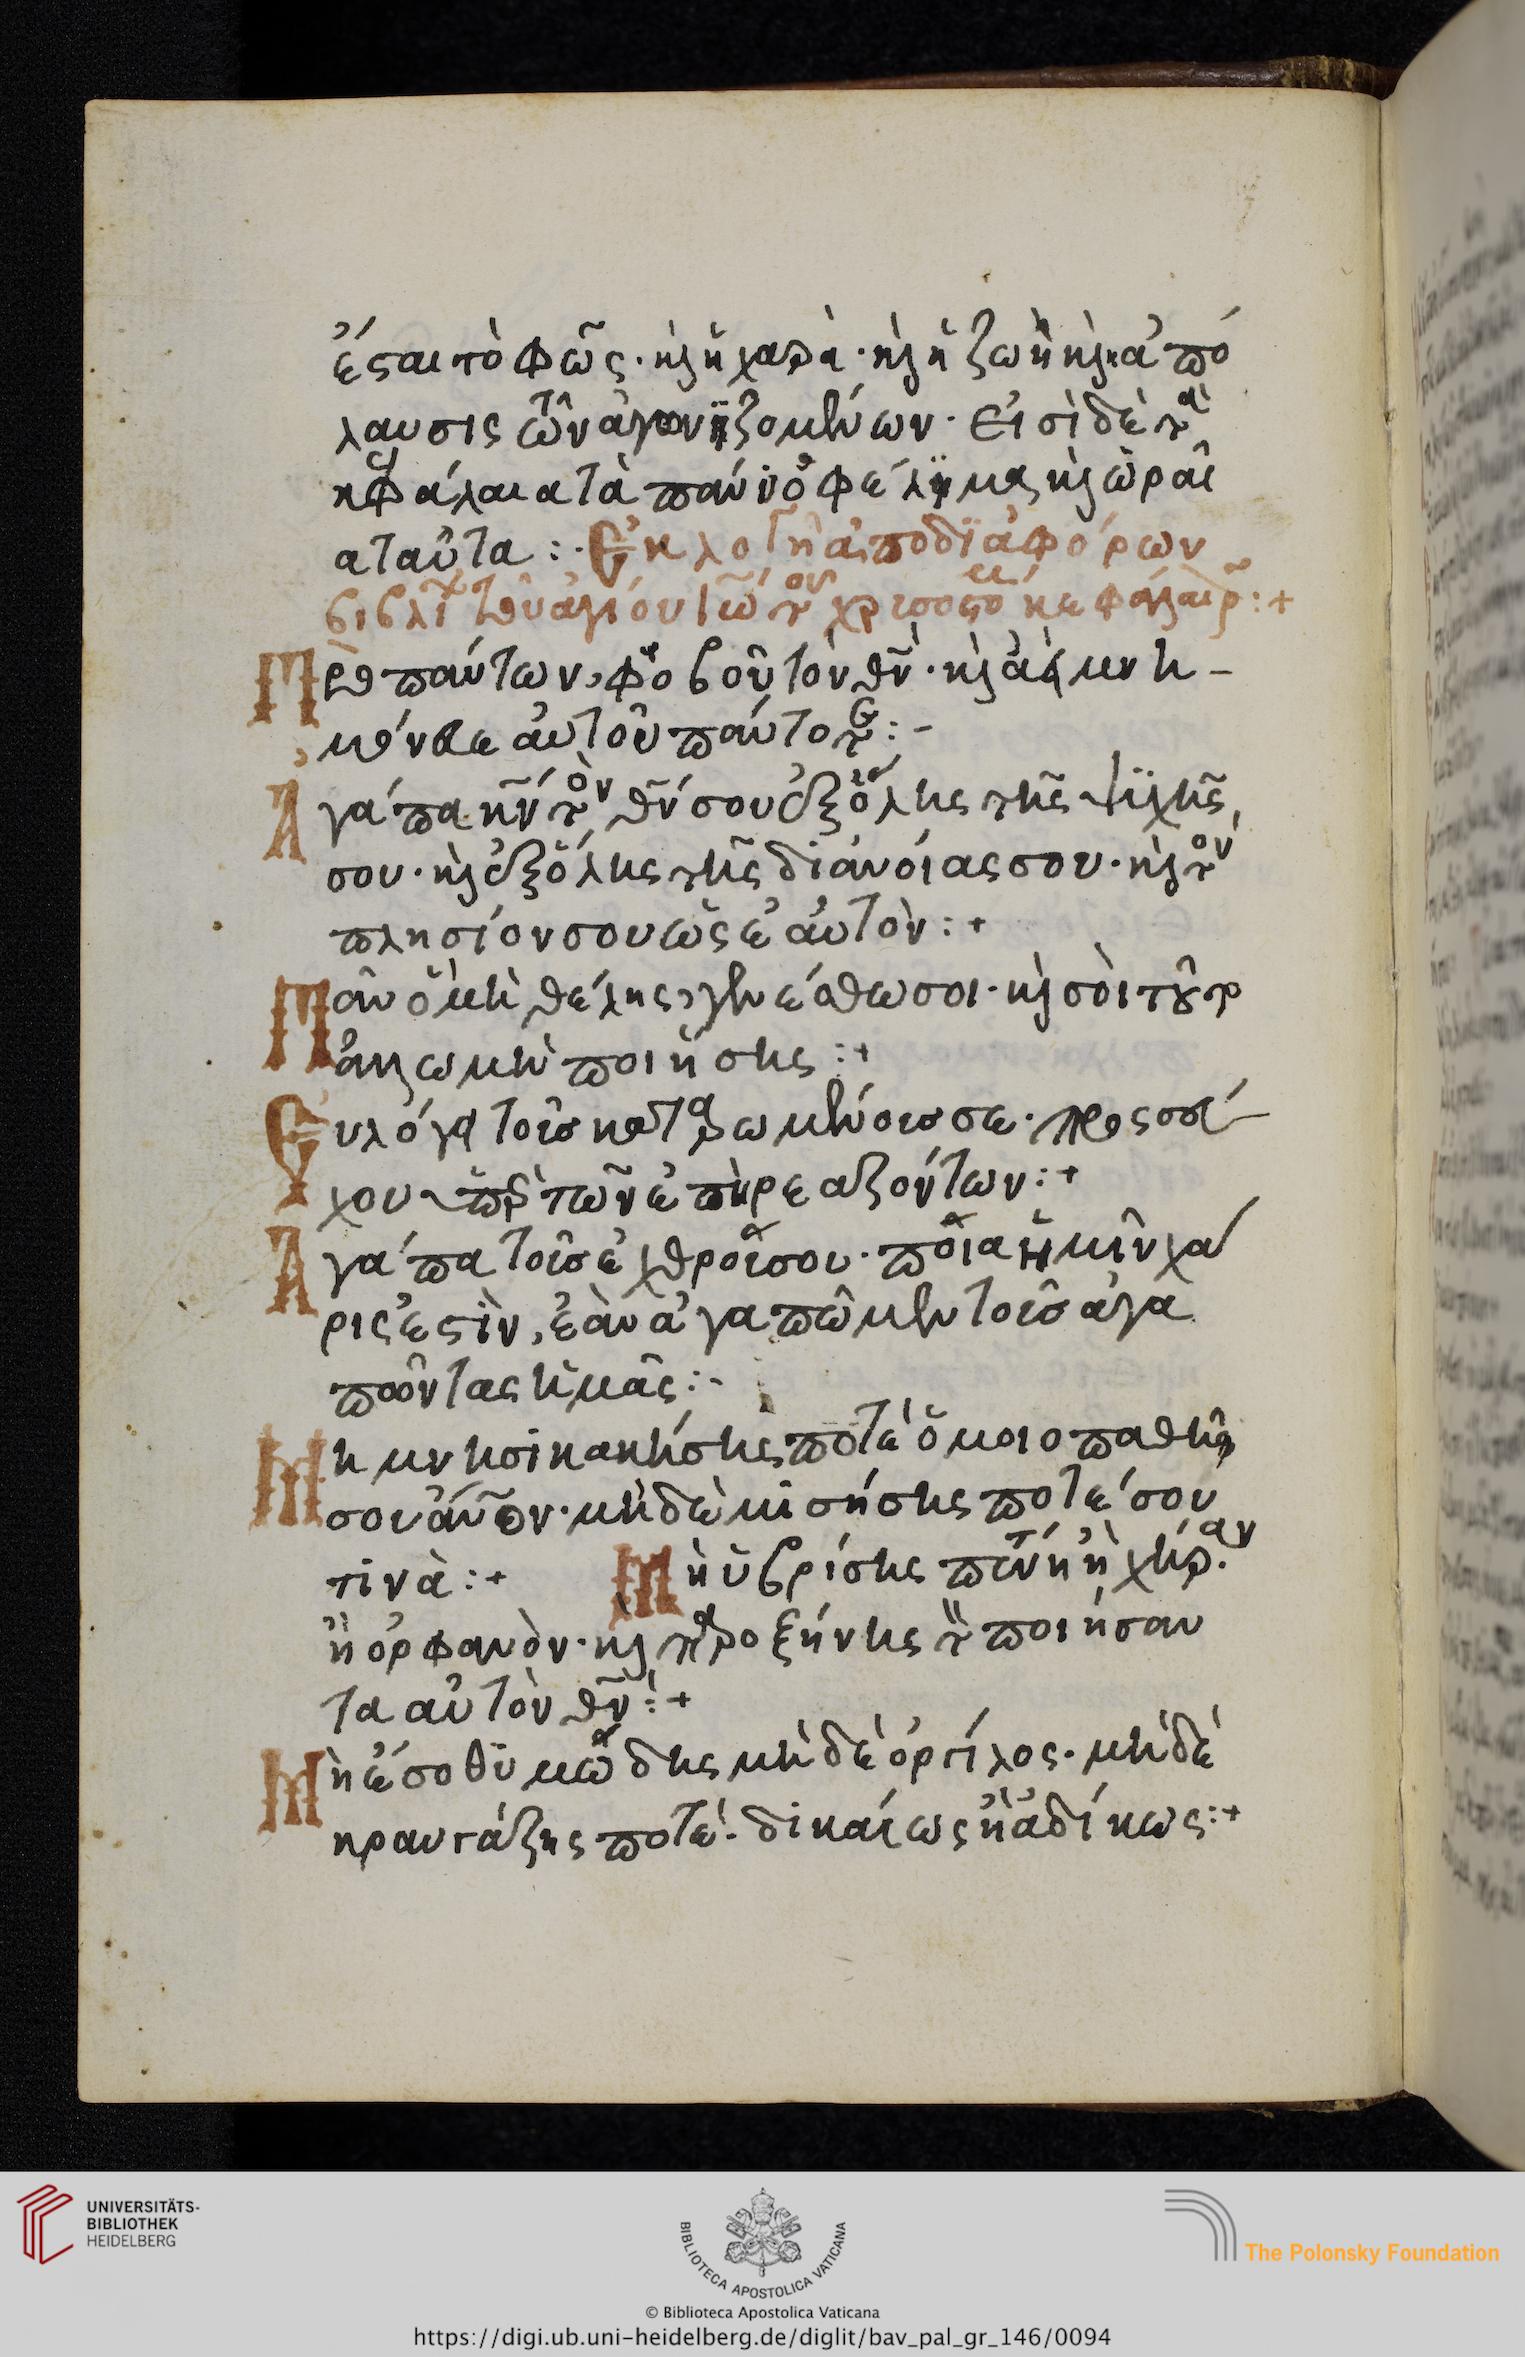 ἔσται τὸ φῶς· καὶ ἡ χαρὰ· καὶ ἡ ζωὴ καὶ ἀπό
λαυσις τῶν ἀγωνϊζομένων· Εἰσὶ δὲ τὰ
κεφάλαια τὰ πάνυ ὀφέλϊμα καὶ ὡραῖ
α ταῦτα :· Ἐκλογὴ ἀπο δϊαφόρων
βιβλί τοῦ ἁγίου Ἰω τοῦ χρισοστό κεφάλαι ρ̄ :+
Πρὸ πάντων, φοβοῦ τὸν θν̄· καὶ ἀεὶ μνη-
μόνευε αὐτοῦ πάντοτε :-
Ἀγάπα κν̄ τὸν θν̄ σου ἐξ ὅλης τῆς ψϊχῆς
σου· καὶ ἐξ ὅλης τῆς διανοίας σου· καὶ τὸν
πλησίον σου ὡς ἑαυτὸν :+
Πᾶν ὃ μὴ θέλης, γενέσθω σοι· καὶ σὺ τοῦτ
ἄλλω μὴ ποιήσης :+
Εὐλόγα τοῖσ καταρωμένοισ σε· προσσεύ
χου ὑπὲρ τῶν ἐπηρεαζόντων :+
Ἀγάπα τοῖσ ἐχθροῖσ σου· ποία ἡμῖν χά
ρις ἐστὶν, ἐὰν ἀγαπῶμεν τοῖσ ἀγα
ποῦντας ἡμᾶς :-
Μη μνησικακήσης ποτέ ὁμοιοπαθῆ
σου ἄνον· μὴδὲ μισήσης ποτέ σου
τινὰ :+ Μὴ ὑβρίσης πένη ἢ χήραν
ἢ ὀρφανὸν· καὶ παροξήνης τὸ ποιήσαν
τα αὐτὸν θν̄ :+
Μὴ ἔσο θϋμώδης μὴδὲ ὀργίλος· μὴδὲ
κραυγάζης ποτέ· δικαίως ἢ ἀδίκως :+
UNIVERSITÄTS-
BIBLIOTHEK
HEIDELBERG
BIBLIOTECA APOSTOLICA VATICANA
The Polonsky Foundation
© Biblioteca Apostolica Vaticana
https://digi.ub.uni-heidelberg.de/diglit/bav_pal_gr_146/0094